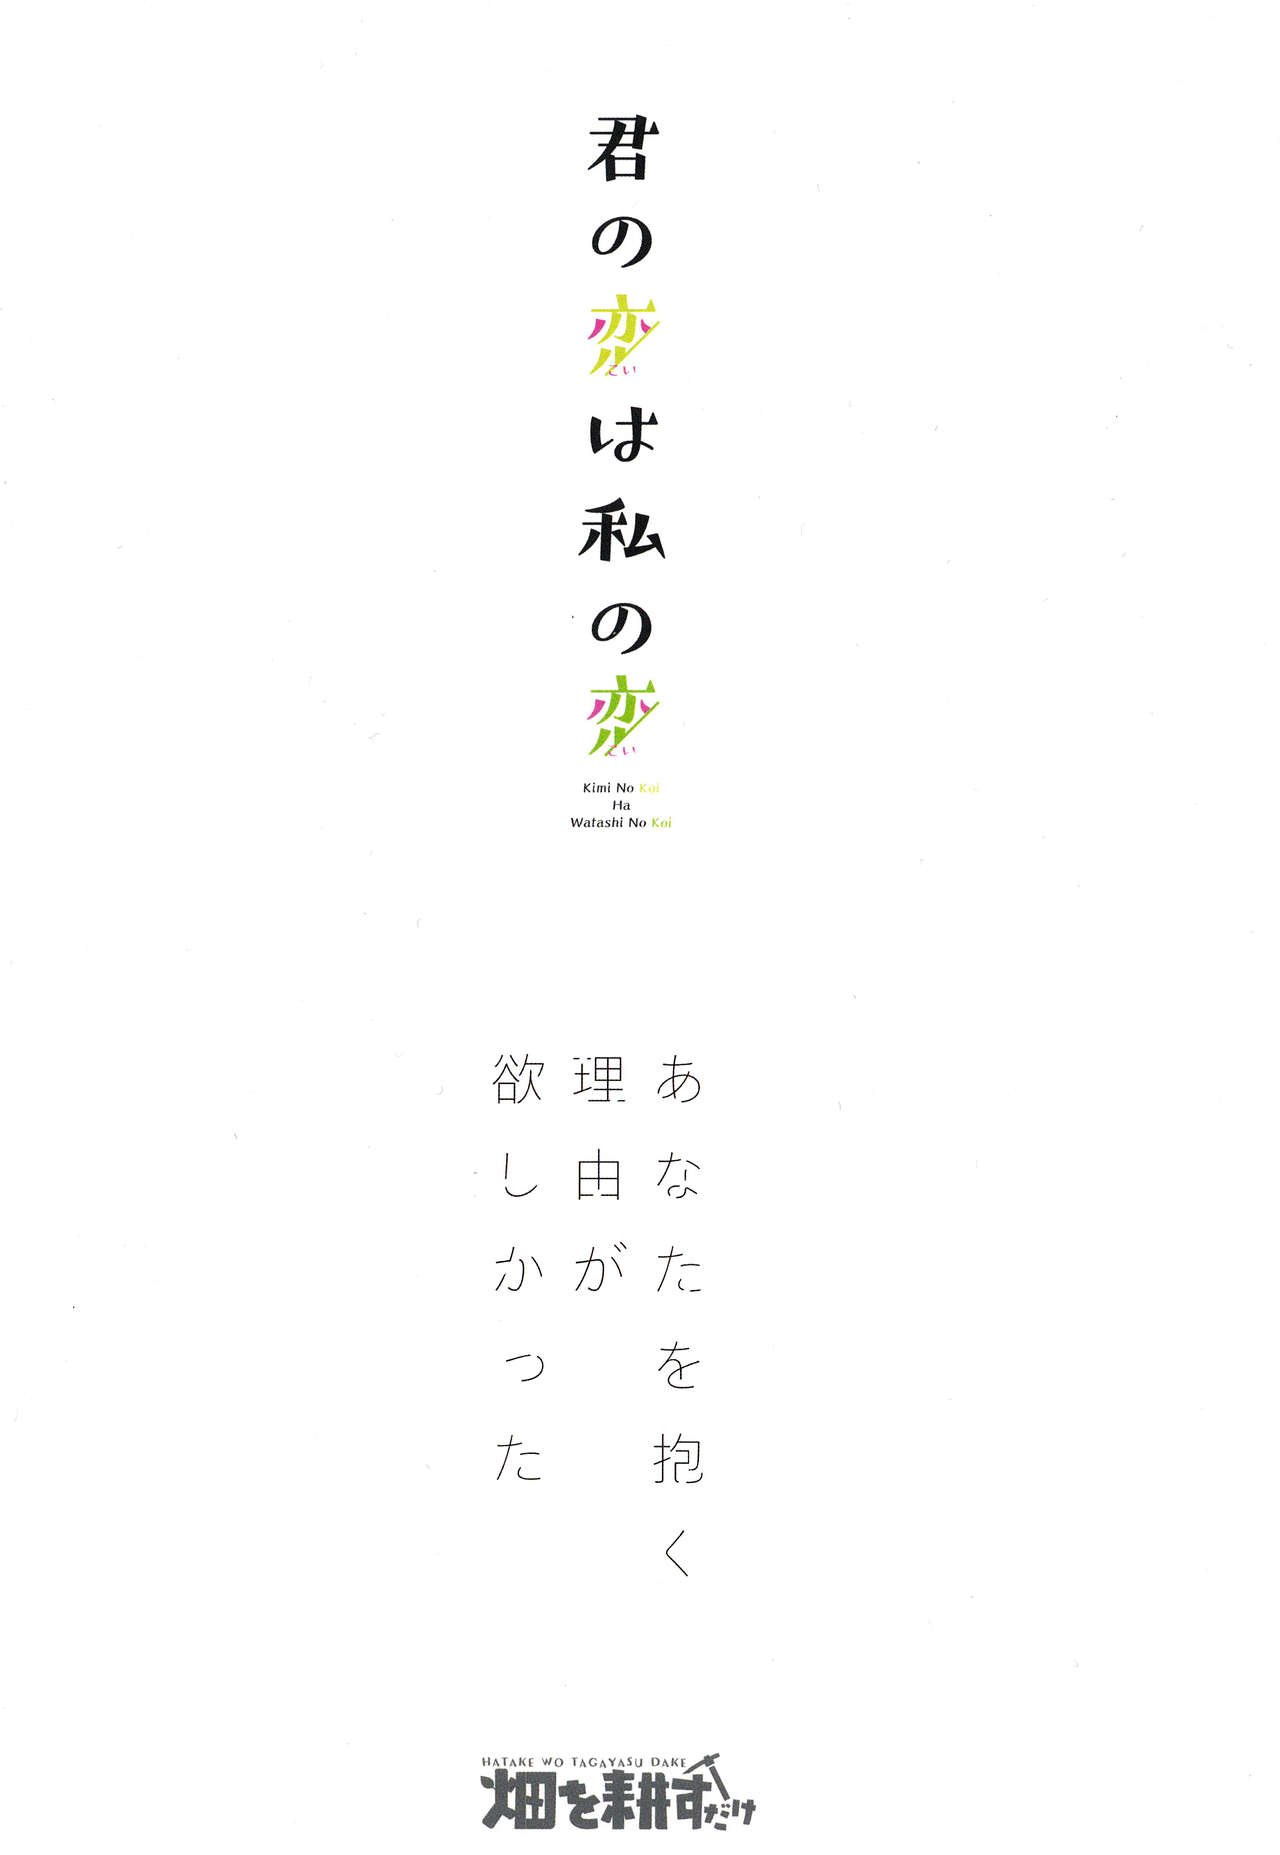 君の恋は私の恋
こい
こい
Kimi No Koi
Ha
Watashi No Koi
あなたを抱く
理由が
欲しかった
HATAKE WO TAGAYASU DAKE
畑を耕すだけ